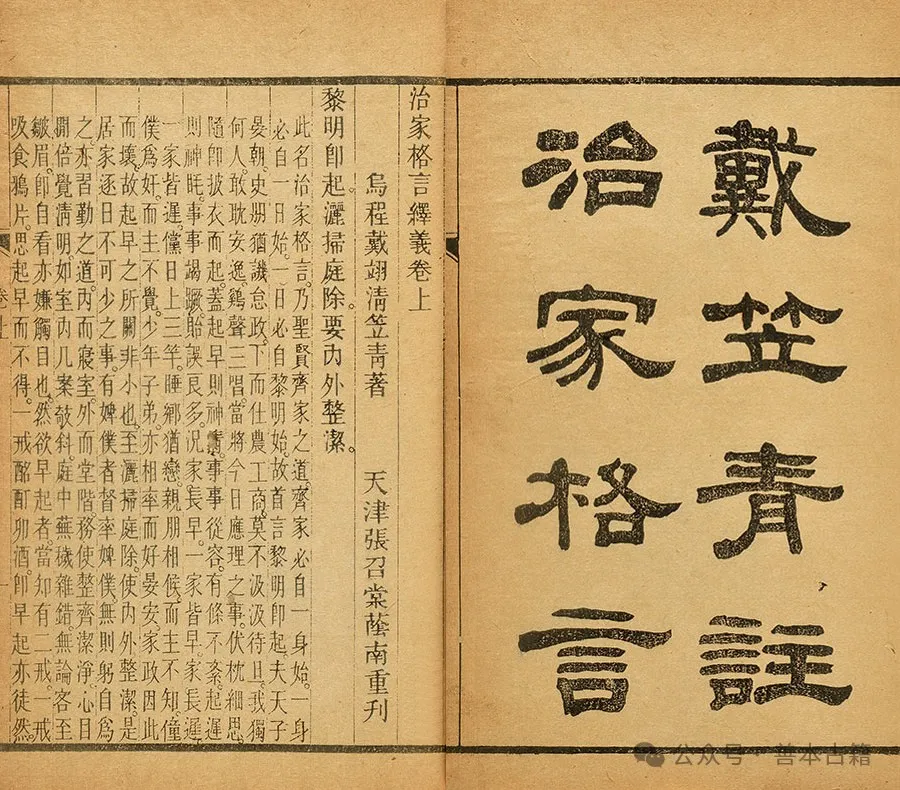 戴笠青註
治家格言
治家格言繹義卷上
烏程戴翊淸笠青著 天津張召棠蔭南重刊
黎明卽起。灑掃庭除。要內外整潔。
此名治家格言。乃聖賢齊家之道。齊家必自一身始。一身
必自一日始。一日必自黎明始。故首言黎明卽起。夫天子
晏朝。史册猶譏怠政。下而仕農工商。莫不汲汲待旦。我獨
何人。敢耽安逸。鷄聲三唱。當將今日應理之事。伏枕細思。
隨卽披衣而起。蓋起早則神事事從容。有條不紊。起遲
則神眊。事事竭蹶。貽誤良多。況家長早。一家皆早。家長遲。
一家皆遲。儻日上三竿。睡鄉猶戀。親朋相候。而主不知。僮
僕爲奸。而主不覺。少年子弟。亦相率而好晏安。家政因此
而壞。故起早之所關非小也。至灑掃庭除。使內外整潔。是
居家逐日不可少之事。有婢僕者督率婢僕。無則躬自爲
之。亦習勤之道。內而寢室。外而堂階。務使整齊潔淨。心目
間倍覺淸明。如室內几案攲斜。庭中蕪穢雜錯。無論客至
皺眉。卽自看亦嫌觸目也。然欲早起者。當知有二戒。一戒
吸食鴉片。思起早而不得。一戒酩酊卯酒。卽早起亦徒然。
卷上
公众号·善本古籍